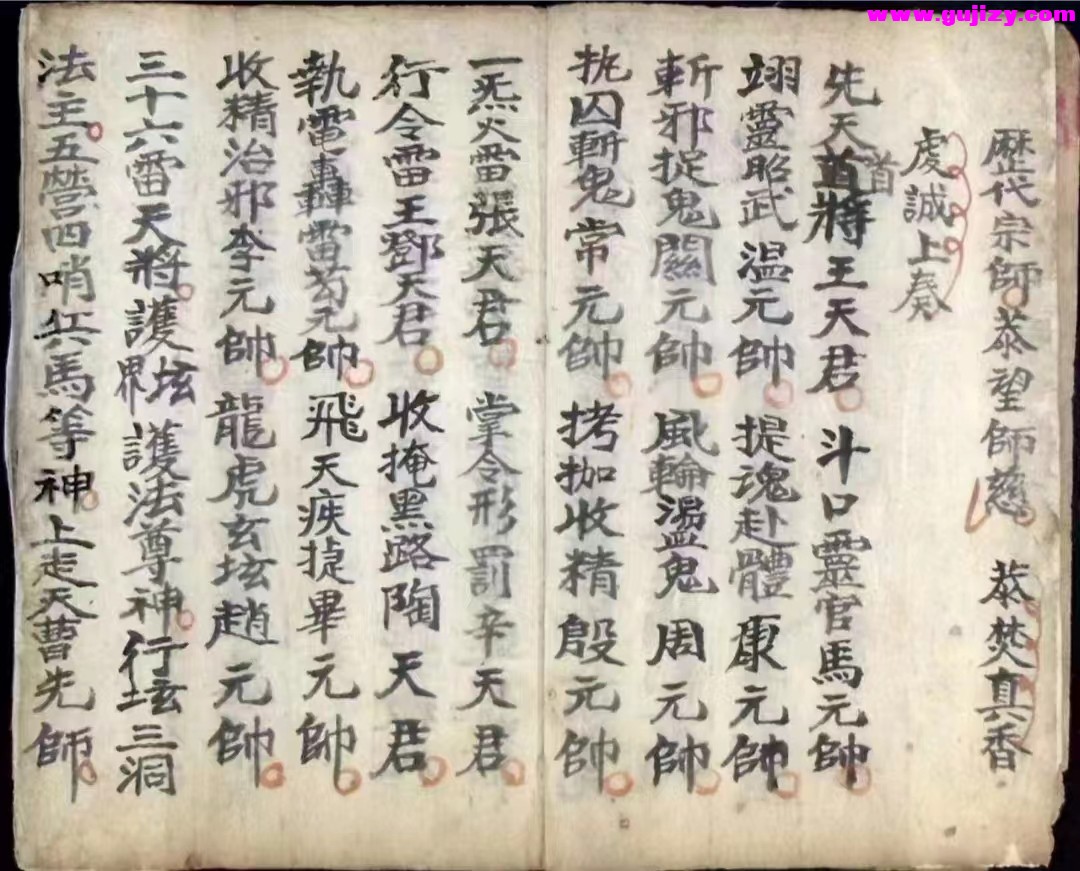 www.gujizy.com
歷代宗師恭望師慈 恭焚真香
虔誠上奏
先天首將王天君 斗口靈官馬元帥
翊靈昭武溫元帥 提魂赴體康元帥
斬邪捉鬼關元帥 風輪盪鬼周元帥
囚斬鬼常元帥 拷枷收精殷元帥
一炁火雷張天君 掌令形罰辛天君
行令雷王鄧天君 收掩黑路陶天君
執電轟雷茍元帥 飛天疾捷畢元帥
收精治邪李元帥 龍虎玄坛趙元帥
三十六雷天將護坛界 護法尊神行坛三洞
法主五營四哨兵馬等神上走天曹先師